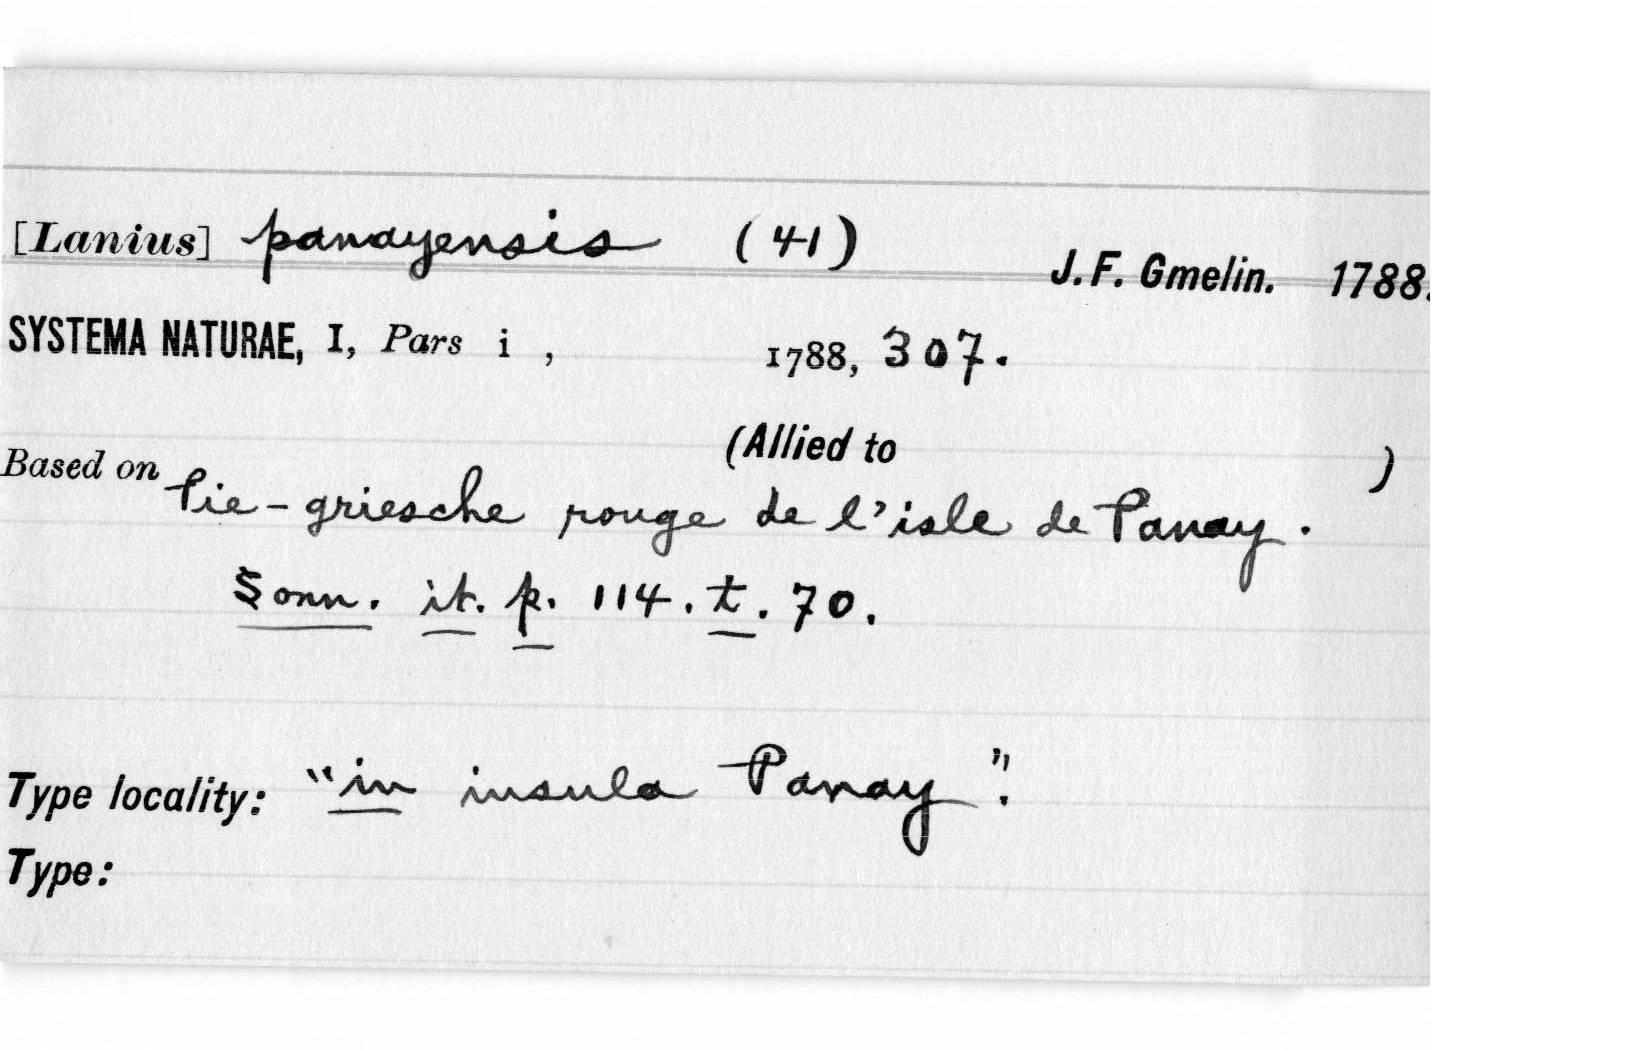 [Lanius] panayensis (41)
J. F. Gmelin. 1788.
SYSTEMA NATURAE, I, Pars i , 1788, 307.
(Allied to )
Based on Pie-griesche rouge de l'isle de Panay.
Sonn. it. p. 114. t. 70.
Type locality: "in insula Panay".
Type: